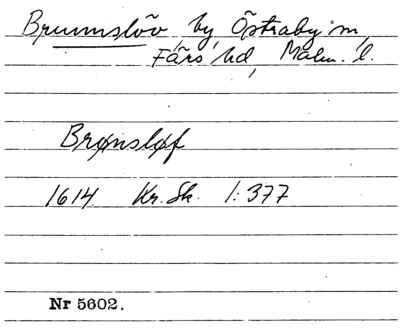 Brunnslöv, by, Östraby sn,
Färs hd, Malm. l.
Brønsløf
1614 Kr. Sk. 1:377
Nr 5602.